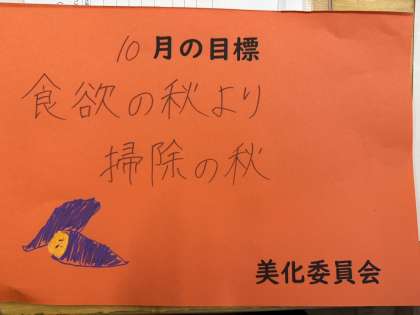 10月の目標
食欲の秋より
掃除の秋
美化委員会